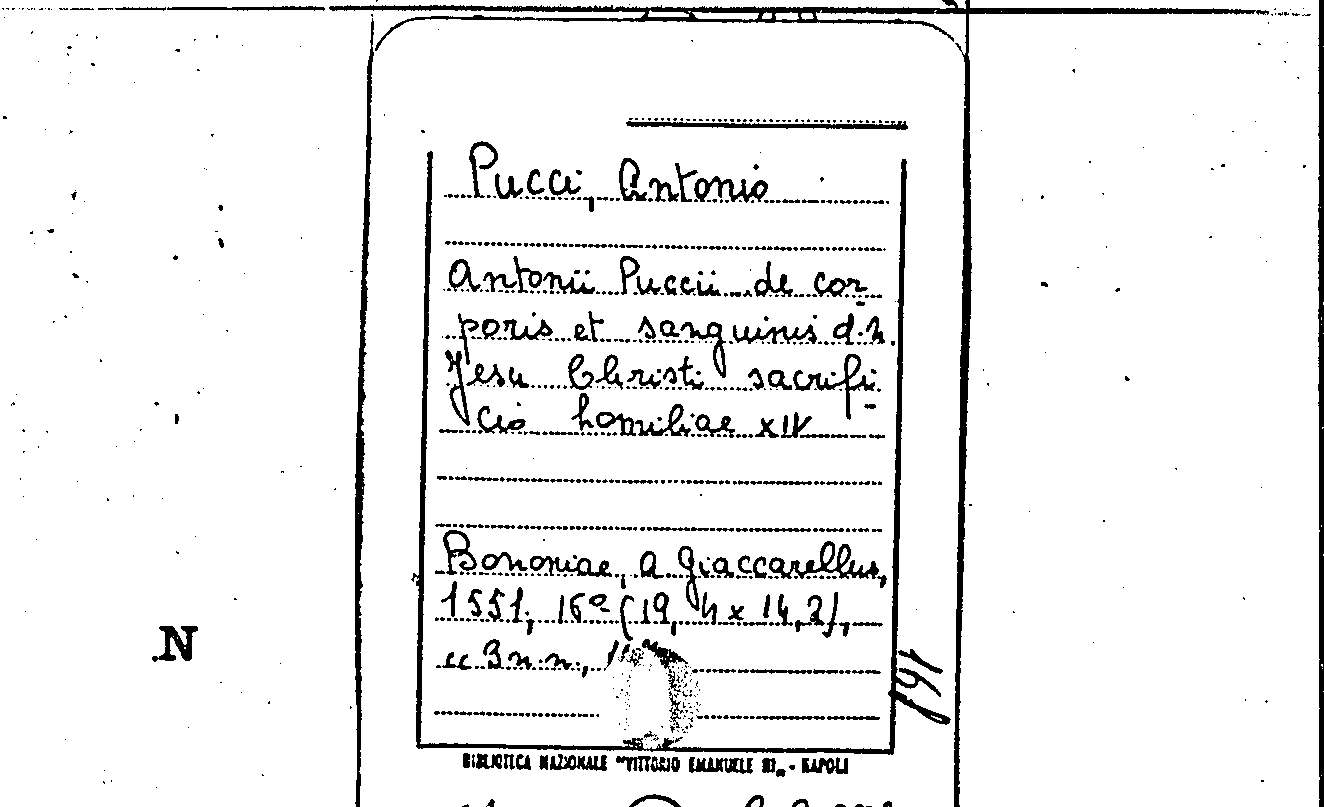 Pucci, Antonio
Antonii Puccii de cor-
poris et sanguinis d.n.
Jesu Christi sacrifi-
cio homiliae XIV
Bononiae, A Giaccarellus,
1551, 16° (19,4 x 14,2),
cc 3 n.n.,
N
BIBLIOTECA NAZIONALE "VITTORIO EMANUELE III„ - NAPOLI